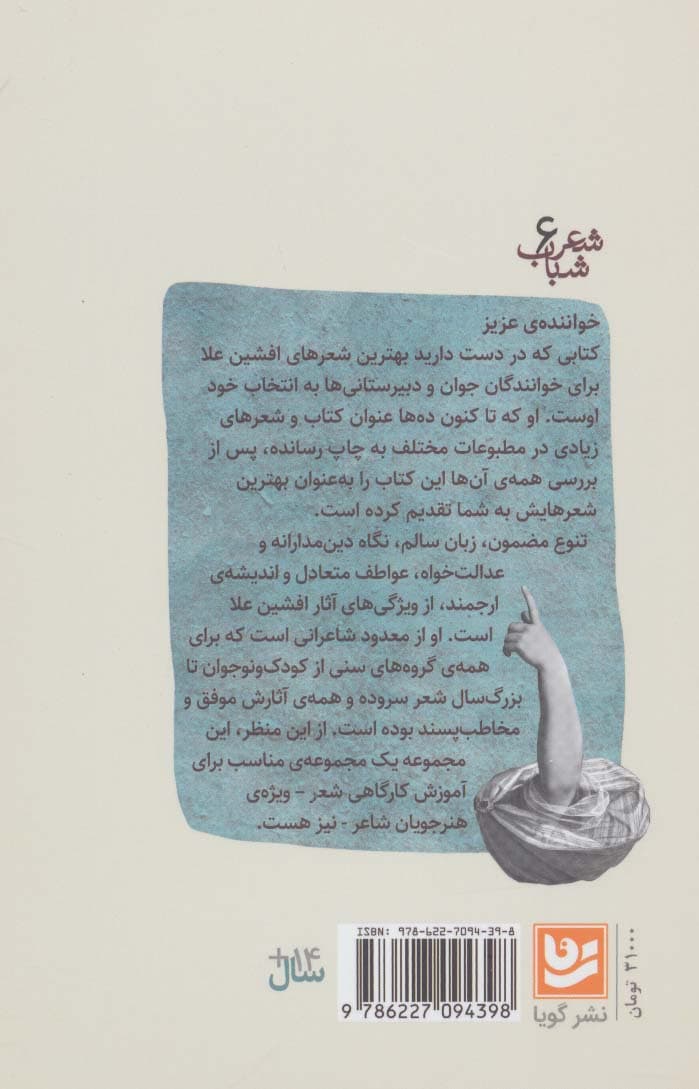 شعر
شباب ۶
خواننده‌ی عزیز
کتابی که در دست دارید بهترین شعرهای افشین علا
برای خوانندگان جوان و دبیرستانی‌ها به انتخاب خود
اوست. او که تا کنون ده‌ها عنوان کتاب و شعرهای
زیادی در مطبوعات مختلف به چاپ رسانده، پس از
بررسی همه‌ی آن‌ها این کتاب را به‌عنوان بهترین
شعرهایش به شما تقدیم کرده است.
تنوع مضمون، زبان سالم، نگاه دین‌مدارانه و
عدالت‌خواه، عواطف متعادل و اندیشه‌ی
ارجمند، از ویژگی‌های آثار افشین علا
است. او از معدود شاعرانی است که برای
همه‌ی گروه‌های سنی از کودک‌ونوجوان تا
بزرگ‌سال شعر سروده و همه‌ی آثارش موفق و
مخاطب‌پسند بوده است. از این منظر، این
مجموعه یک مجموعه‌ی مناسب برای
آموزش کارگاهی شعر – ویژه‌ی
هنرجویان شاعر - نیز هست.
+۱۴
سال
ISBN: 978-622-7094-39-8
9 786227 094398
گویا
نشر گویا
۳۱۰۰۰ تومان